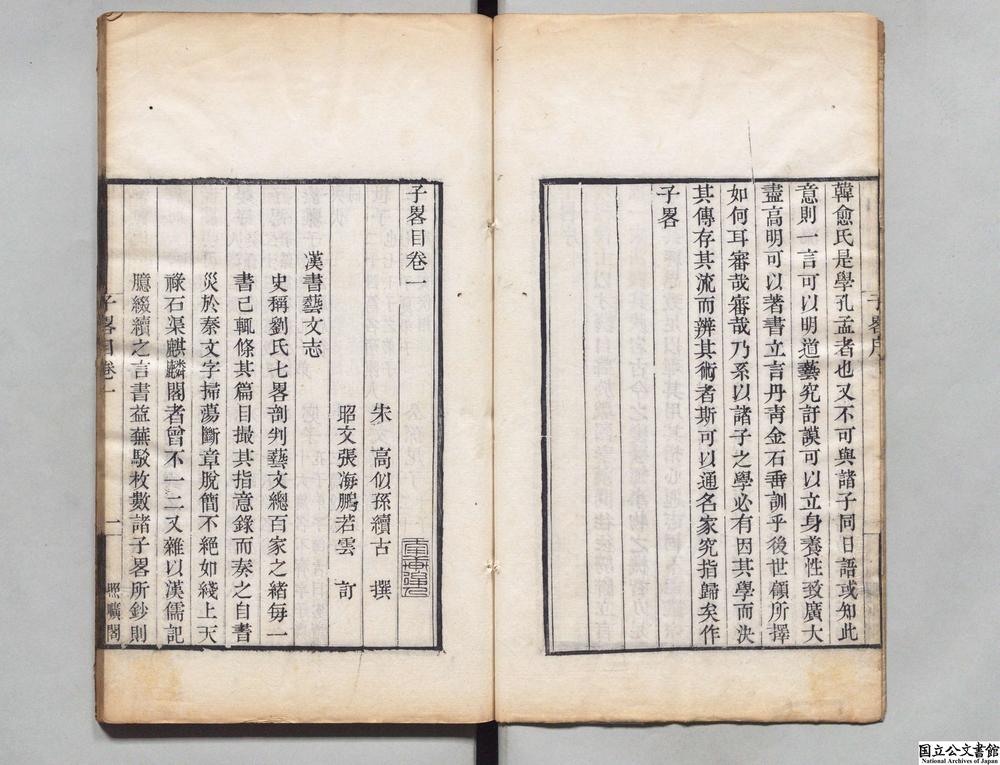 韓愈氏是學孔孟者也又不可與諸子同日語或知此
意則一言可以明道藝究訏謨可以立身養性致廣大
盡高明可以著書立言丹靑金石垂訓乎後世顧所擇
如何耳審哉審哉乃系以諸子之學必有因其學而決
其傳存其流而辨其術者斯可以通名家究指歸矣作
子畧
子畧序
子畧目卷一
朱 高似孫續古 撰
昭文張海鵬若雲 訂
漢書藝文志
史稱劉氏七畧剖判藝文總百家之緒每一
書已輒條其篇目撮其指意錄而奏之自書
災於秦文字掃蕩斷章脫簡不絕如綫上天
祿石渠麒麟閣者曾不一二又雜以漢儒記
臆綴續之言書益蕪駁枚數諸子畧所鈔則
子畧目卷一
一
照曠閣
国立公文書館
National Archives of Japan